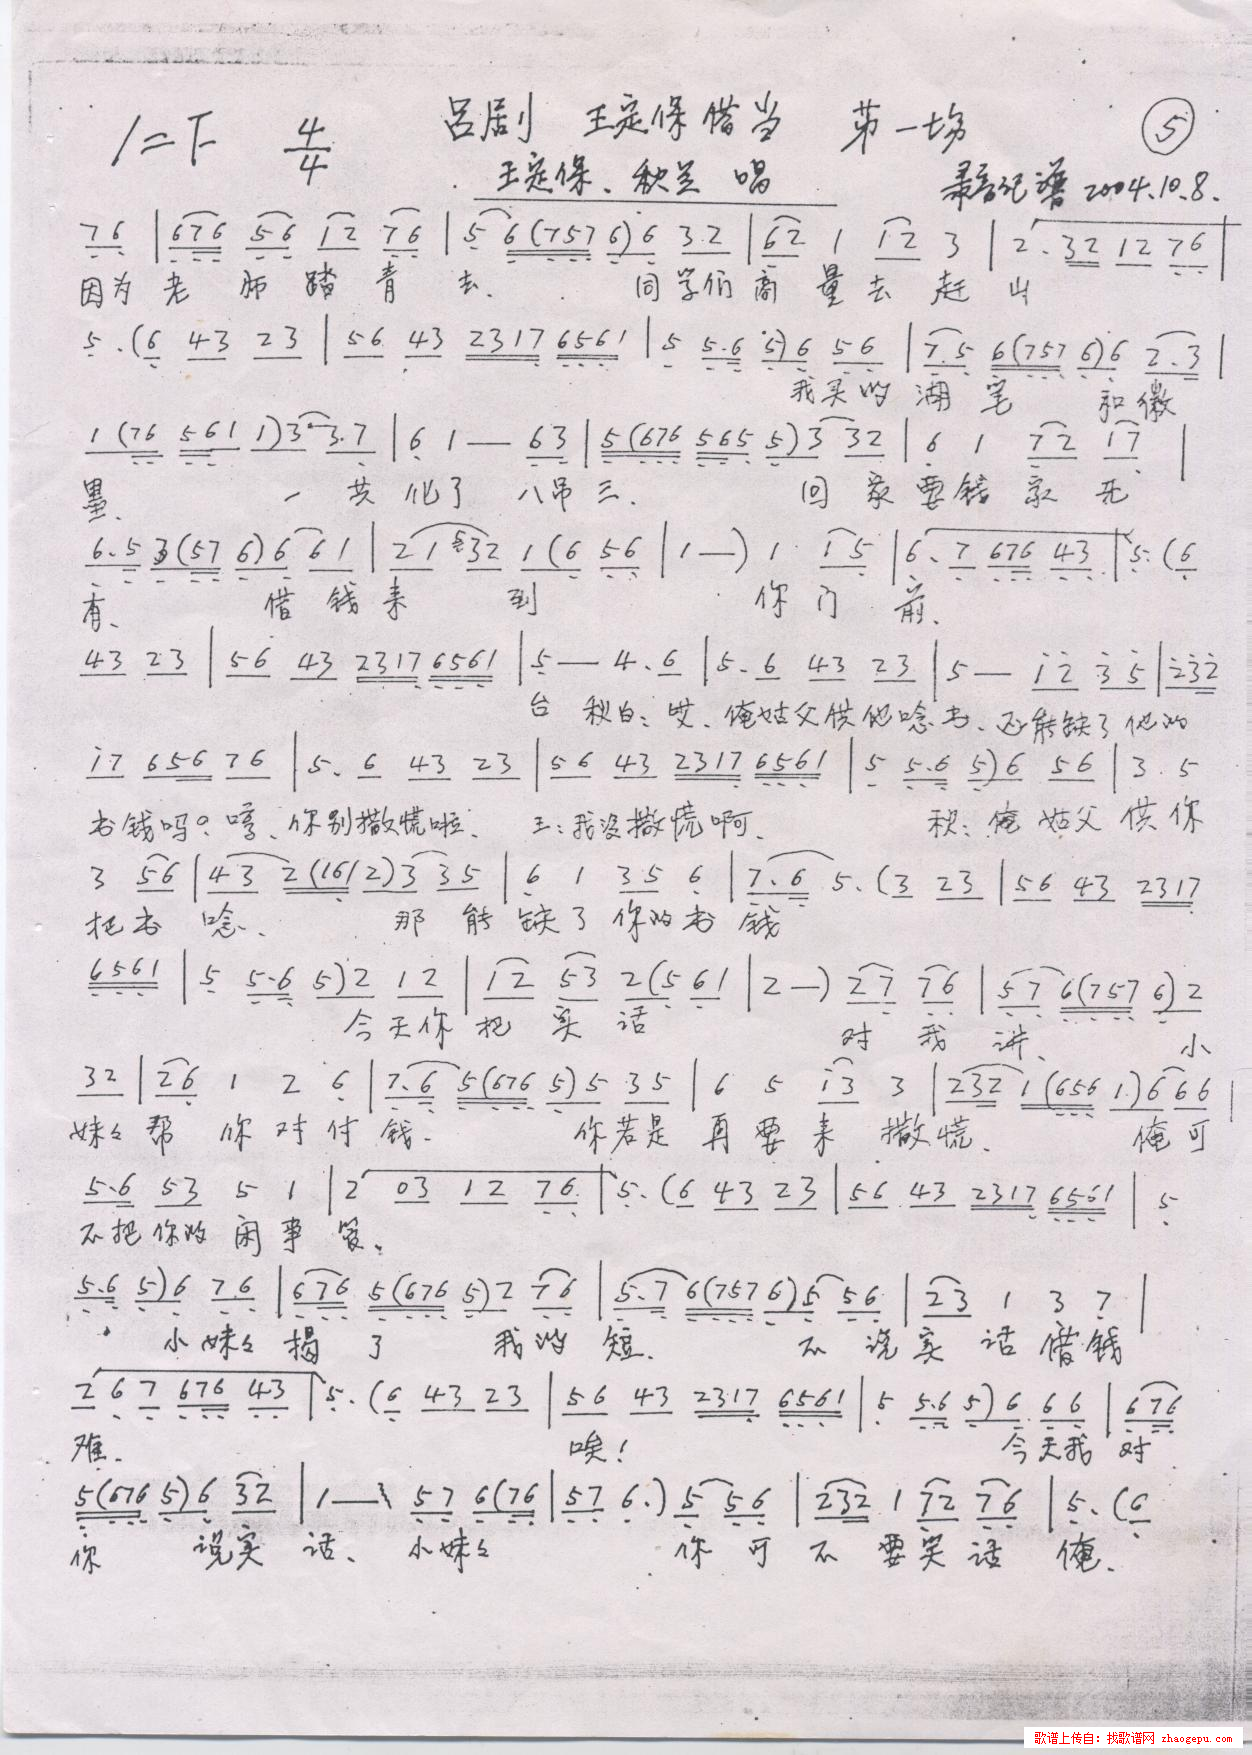 1=F 4/4 吕剧 王定保借当 第一场 ⑤
王定保、秋兰 唱 录音记谱 2004.10.8.
76 | 676 56 12 76 | 5 6(7576)6 32 | 62 1 12 3 | 2.32 12 76 |
因为老师踏青去. 同学们商量去赶山
5.(6 43 23 | 56 43 2317 6561 | 5 5.6 5)6 56 | 7.5 6(757 6)6 2.3 |
我买的湖笔 和徽
1(76 561 1)3 3.7 | 6 1 — 63 | 5(676 565 5)3 32 | 6 1 72 17 |
墨. 一共化了八吊三. 回家要钱家无
6.5 3(57 6)6 61 | 21 32 1(6 56 | 1 —) 1 15 | 6.7 676 43 | 5.(6
有. 借钱来到 你门前.
43 23 | 56 43 2317 6561 | 5 — 4.6 | 5.6 43 23 | 5 — 12 35 | 232
台 秋白:哎、俺姑父供他唸书、还能缺了他的
17 656 76 | 5.6 43 23 | 56 43 2317 6561 | 5 5.6 5)6 56 | 3.5
书钱吗?哼、你别撒慌啦. 王:我没撒慌啊. 秋:俺姑父供你
3 56 | 43 2(161 2)3 35 | 6 1 35 6 | 7.6 5.(3 23 | 56 43 2317
把书唸、 那能缺了你的书钱
6561 | 5 5.6 5)2 12 | 12 53 2(5 61 | 2 —) 27 76 | 57 6(757 6)2
今天你把实话 对我讲、 小
32 | 26 1 2 6 | 7.6 5(676 5)5 35 | 6 5 13 3 | 232 1(656 1)6 66 |
妹々帮你对付钱. 你若是再要来撒慌. 俺可
5.6 53 5 1 | 2 03 12 76 | 5.(6 43 23 | 56 43 2317 6561 | 5
不把你的闲事管、
5.6 5)6 7.6 | 676 5(676 5)2 76 | 5.7 6(757 6)5 56 | 23 1 3 7 |
小妹々揭了 我的短. 不说实话借钱
2 6 7 676 43 | 5.(6 43 23 | 56 43 2317 6561 | 5 5.6 5)6 66 | 676
难. 唉! 今天我对
5(676 5)6 32 | 1 — 57 6(76 | 57 6.)5 56 | 232 1 72 76 | 5.(6
你 说实话、小妹々 你可不要笑话俺.
歌谱上传自:找歌谱网 zhaogepu.com